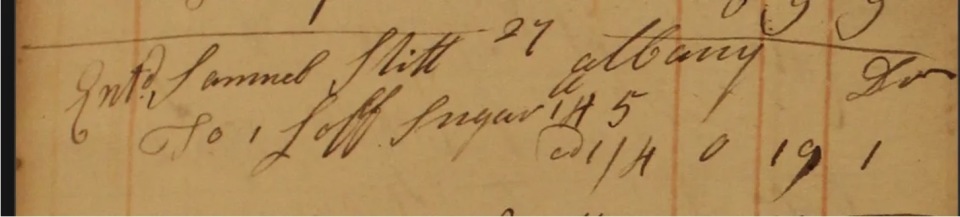 Entd. Samuel Stitt 27 albany Dr
To 1 Loff Sugar 14 5 @ 1/4 0 19 1